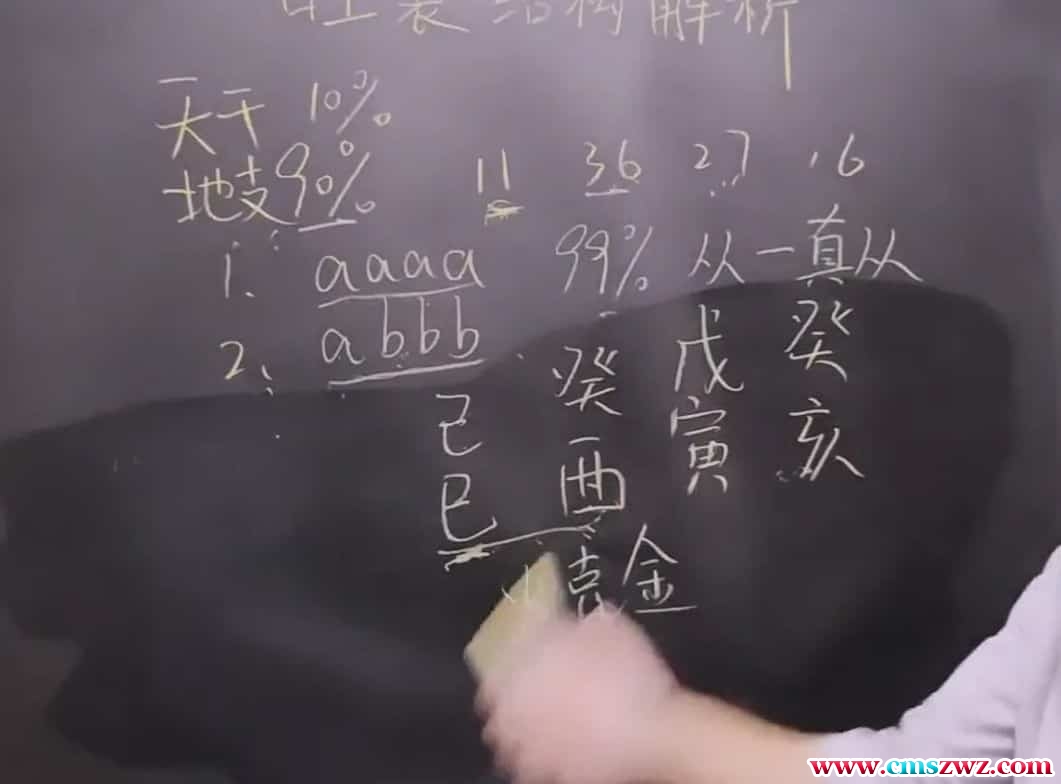 旺衰结构解析
天干 10%
地支90%
11 36 27 16
1、aaaa 99% 从一真从
2、abbb
己 癸 戊 癸
巳 酉 寅 亥
克金
www.cmszwz.com